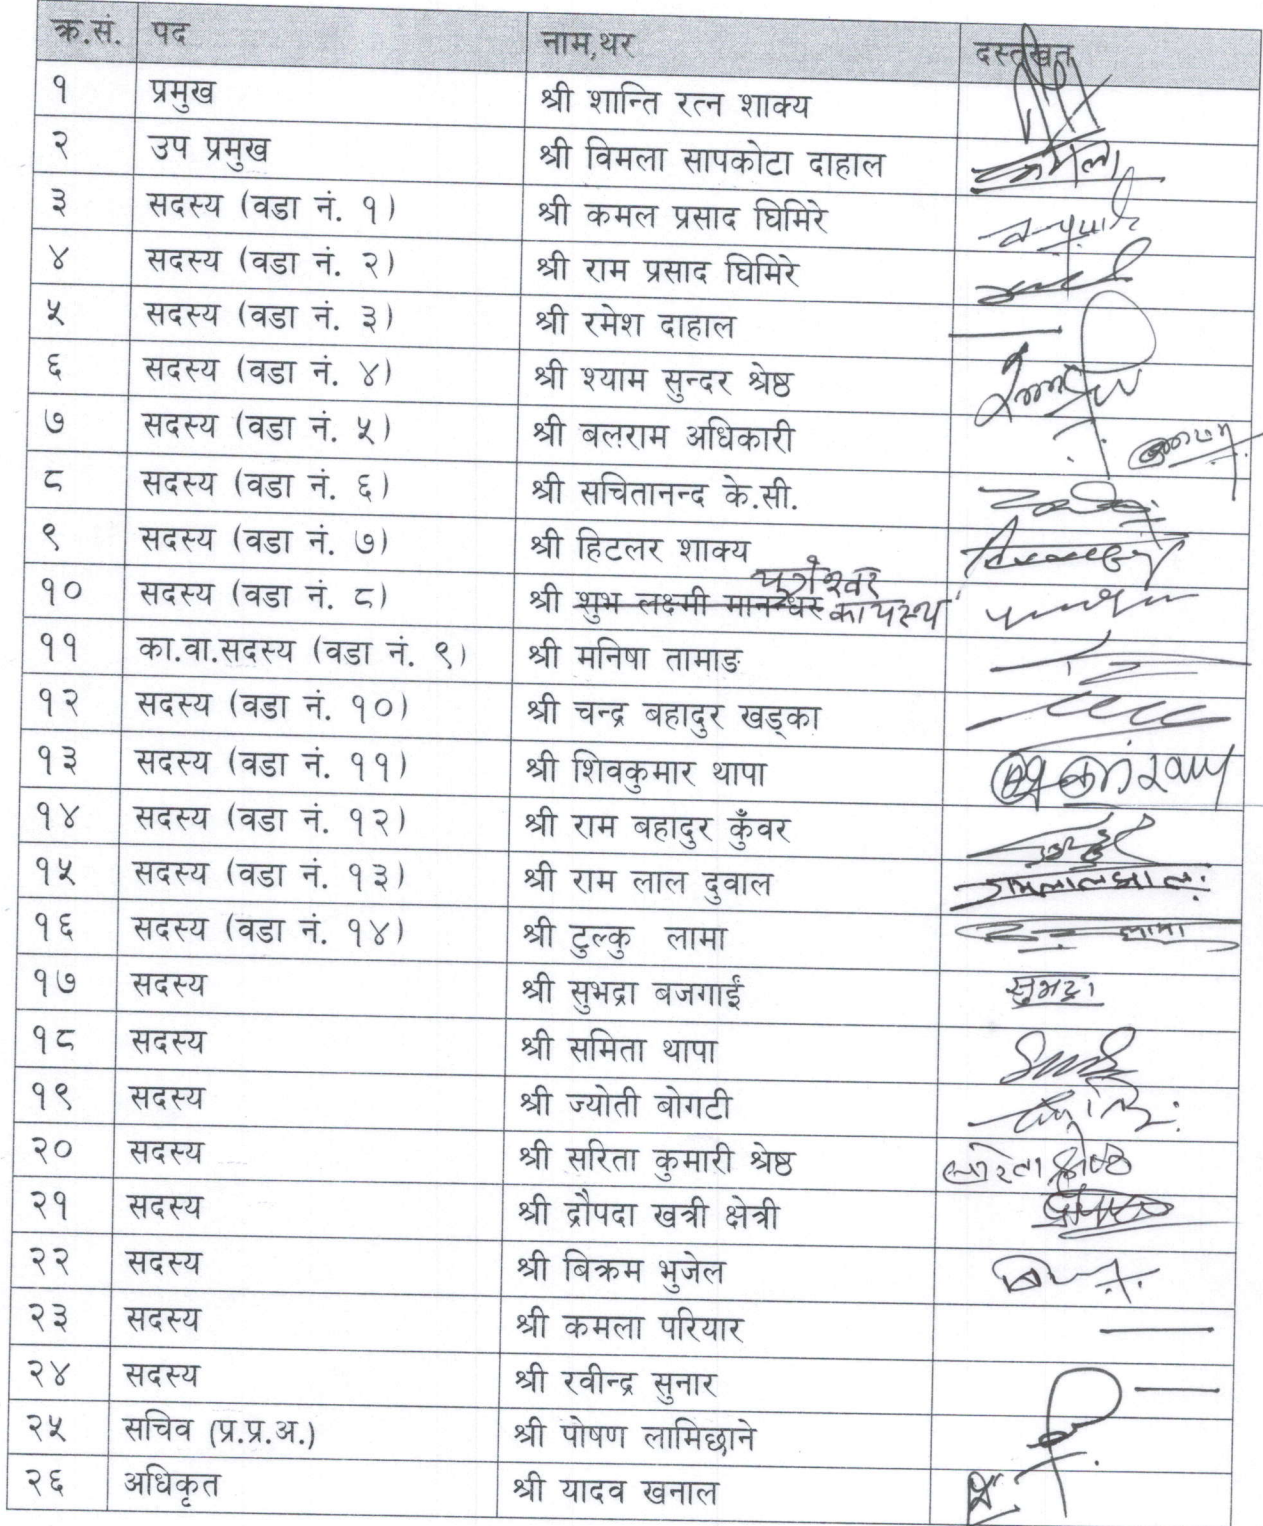 क्र.सं. पद नाम,थर दस्तखत
१ प्रमुख श्री शान्ति रत्न शाक्य
२ उप प्रमुख श्री विमला सापकोटा दाहाल
३ सदस्य (वडा नं. १) श्री कमल प्रसाद घिमिरे
४ सदस्य (वडा नं. २) श्री राम प्रसाद घिमिरे
५ सदस्य (वडा नं. ३) श्री रमेश दाहाल
६ सदस्य (वडा नं. ४) श्री श्याम सुन्दर श्रेष्ठ
७ सदस्य (वडा नं. ५) श्री बलराम अधिकारी
८ सदस्य (वडा नं. ६) श्री सचितानन्द के.सी.
९ सदस्य (वडा नं. ७) श्री हिटलर शाक्य
१० सदस्य (वडा नं. ८) श्री शुभ लक्ष्मी मानन्धर कायस्थ
११ का.वा.सदस्य (वडा नं. ९) श्री मनिषा तामाङ
१२ सदस्य (वडा नं. १०) श्री चन्द्र बहादुर खड्का
१३ सदस्य (वडा नं. ११) श्री शिवकुमार थापा
१४ सदस्य (वडा नं. १२) श्री राम बहादुर कुँवर
१५ सदस्य (वडा नं. १३) श्री राम लाल दुवाल
१६ सदस्य (वडा नं. १४) श्री टुल्कु लामा लामा
१७ सदस्य श्री सुभद्रा बजगाईं सुभद्रा
१८ सदस्य श्री समिता थापा
१९ सदस्य श्री ज्योती बोगटी
२० सदस्य श्री सरिता कुमारी श्रेष्ठ सरिता श्रेष्ठ
२१ सदस्य श्री द्रौपदा खत्री क्षेत्री
२२ सदस्य श्री बिक्रम भुजेल
२३ सदस्य श्री कमला परियार
२४ सदस्य श्री रवीन्द्र सुनार
२५ सचिव (प्र.प्र.अ.) श्री पोषण लामिछाने
२६ अधिकृत श्री यादव खनाल